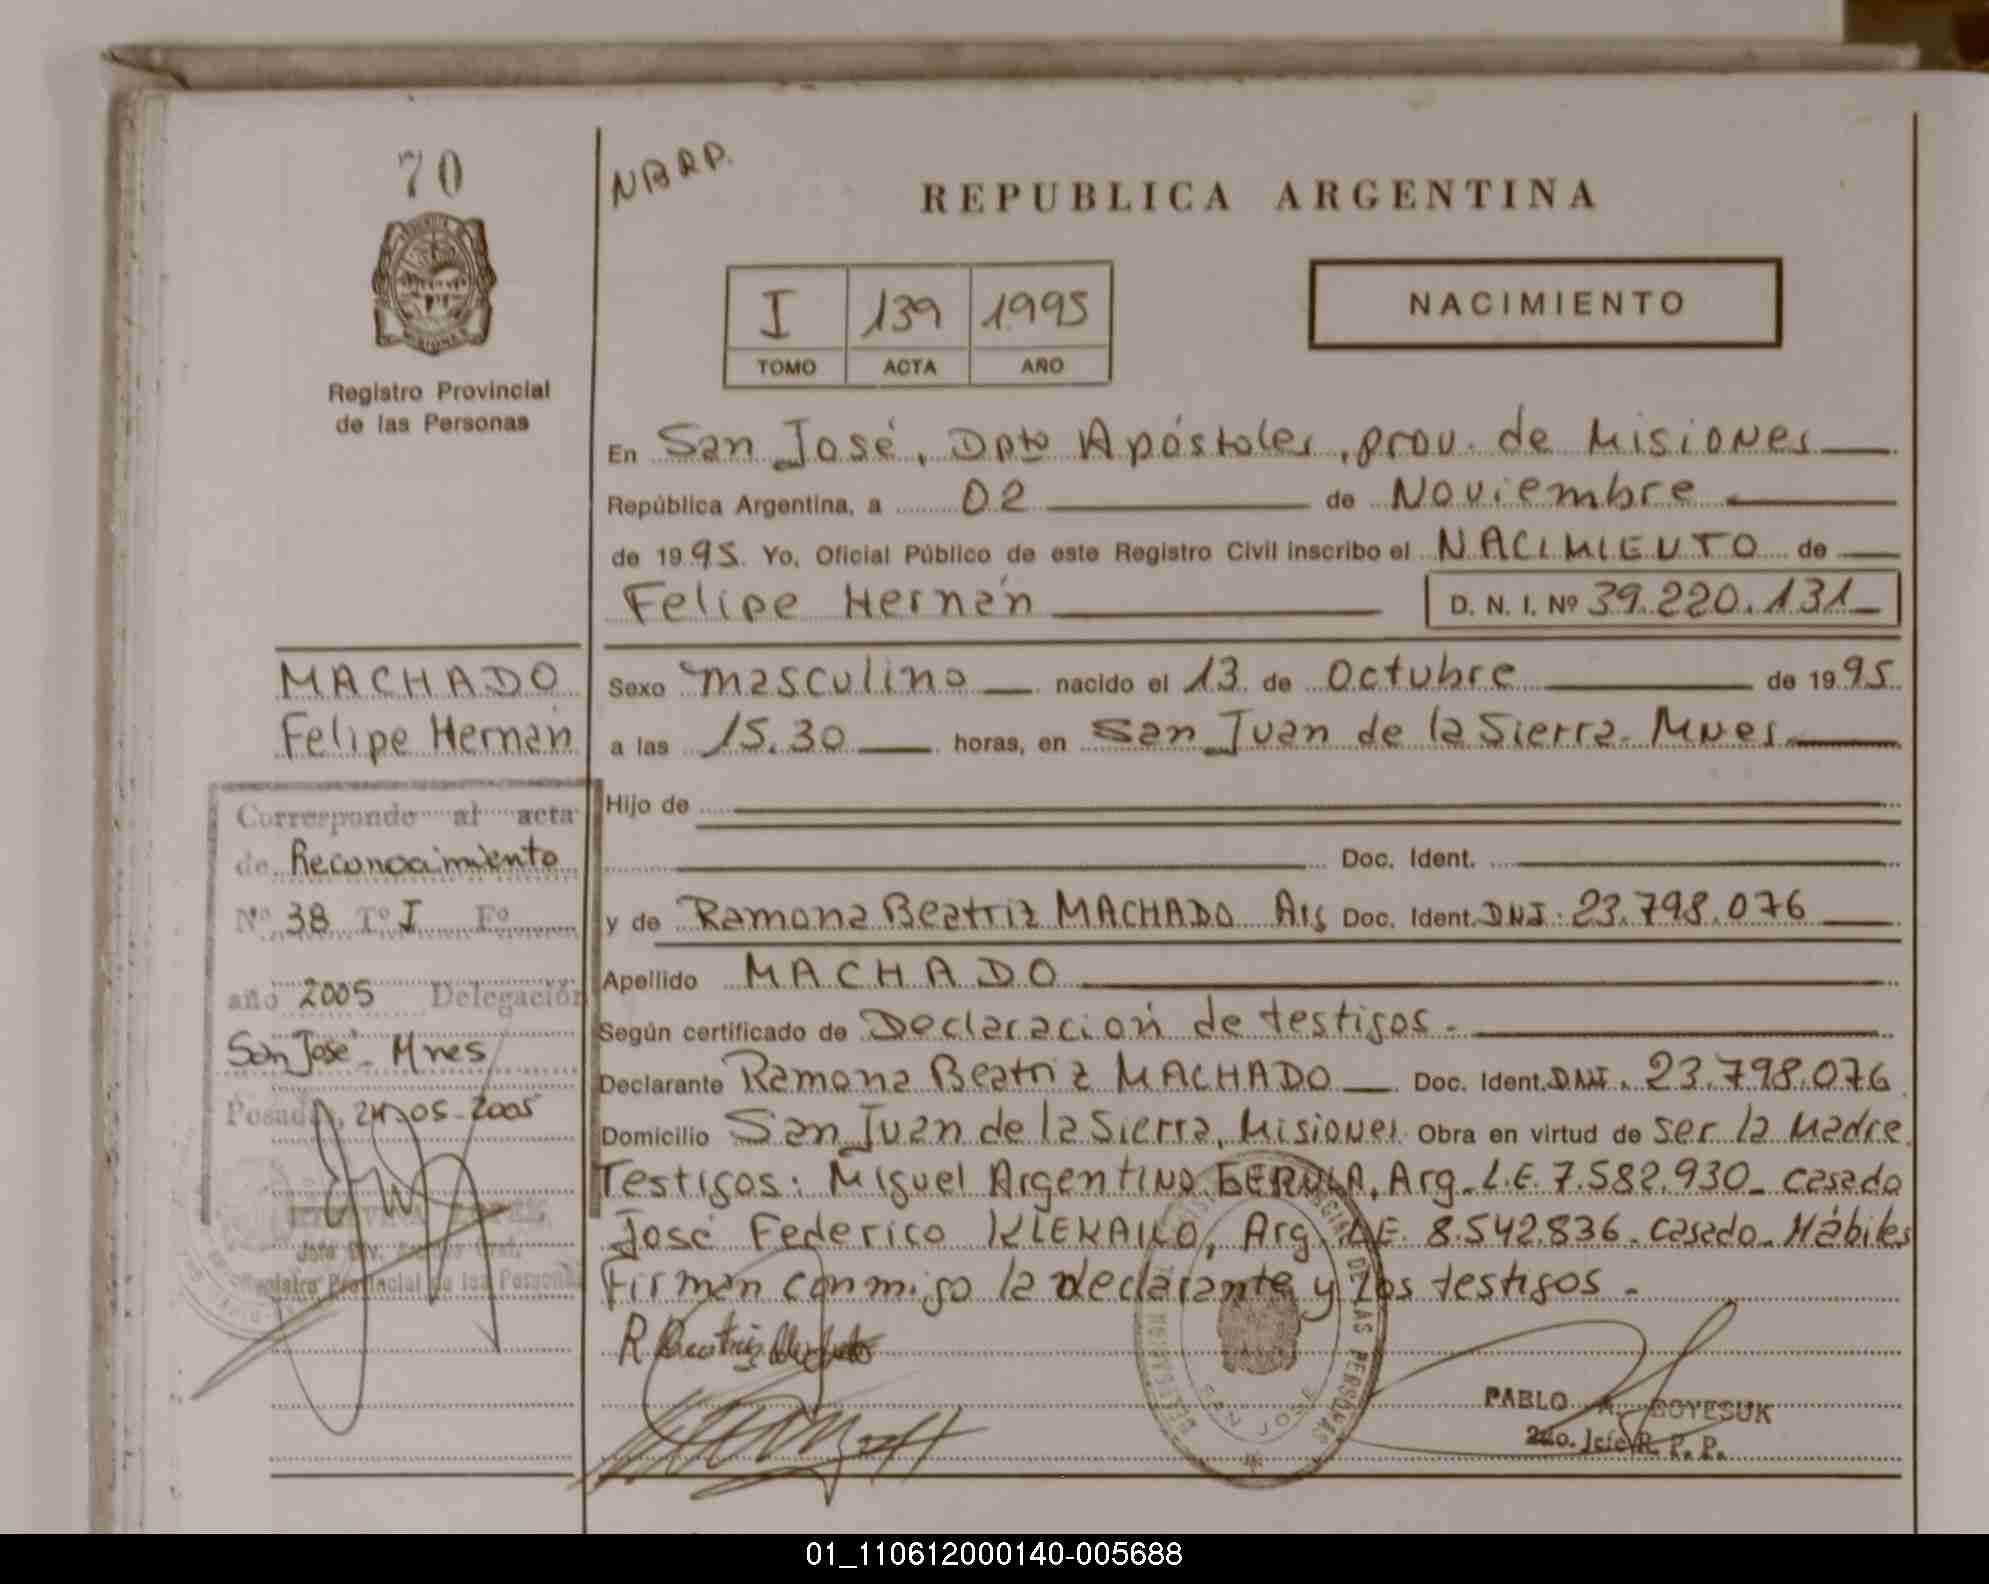 70
Registro Provincial
de las Personas
NBRP.
REPUBLICA ARGENTINA
I 139 1995
TOMO ACTA AÑO
NACIMIENTO
En San José, Dpto Apóstoles, prov. de Misiones
República Argentina, a 02 de Noviembre
de 1995. Yo, Oficial Público de este Registro Civil inscribo el NACIMIENTO de
Felipe Hernán D. N. I. Nº 39.220.131
MACHADO
Felipe Hernán
Sexo masculino nacido el 13 de Octubre de 1995.
a las 15.30 horas, en San Juan de la Sierra - Mnes
Hijo de
Doc. Ident.
y de Ramona Beatriz MACHADO Arg Doc. Ident. DNI: 23.798.076
Apellido MACHADO
Según certificado de Declaración de testigos.-
Declarante Ramona Beatriz MACHADO Doc. Ident. DNI. 23.798.076
Domicilio San Juan de la Sierra, Misiones Obra en virtud de ser la Madre
Testigos: Miguel Argentino Arg. L.E. 7.582.930 - casado
José Federico Arg. LE. 8.542.836 - casado - Hábiles
Firman conmigo la declarante y los testigos.-
Corresponde al acta
de Reconocimiento
Nº 38 Tº I Fº
año 2005 Delegación
San José - Mnes
Posadas, 24-05-2005
Jefe Div.
Registro Provincial de las Personas
R Beatriz Machado
SAN JOSE
PABLO A. BOYESUK
2do. Jefe R. P. P.
01_110612000140-005688